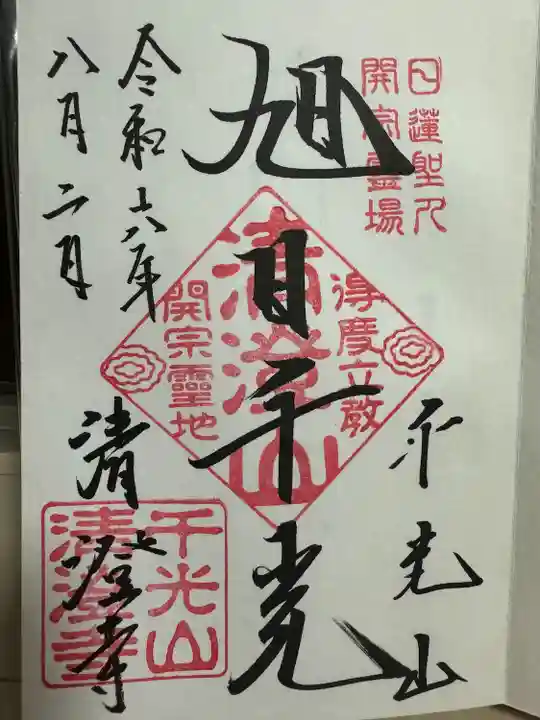 日蓮聖人
開宗霊場
千光山
旭日千光
清澄山
得度立教
開宗霊地
令和六年
八月二日
清澄寺
千光山
清澄寺